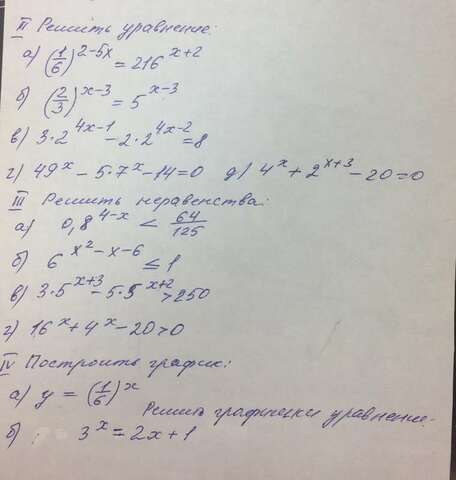 II Решить уравнение:
а) (1/6)^(2-5x) = 216^(x+2)
б) (2/3)^(x-3) = 5^(x-3)
в) 3·2^(4x-1) - 2·2^(4x-2) = 8
г) 49^x - 5·7^x - 14=0 д) 4^x + 2^(x+3) - 20=0
III Решить неравенства:
а) 0,8^(4-x) < 64/125
б) 6^(x²-x-6) ≤ 1
в) 3·5^(x+3) - 5·5^(x+2) > 250
г) 16^x + 4^x - 20 > 0
IV Построить график:
а) y = (1/6)^x
Решить графически уравнение:
б) 3^x = 2x + 1